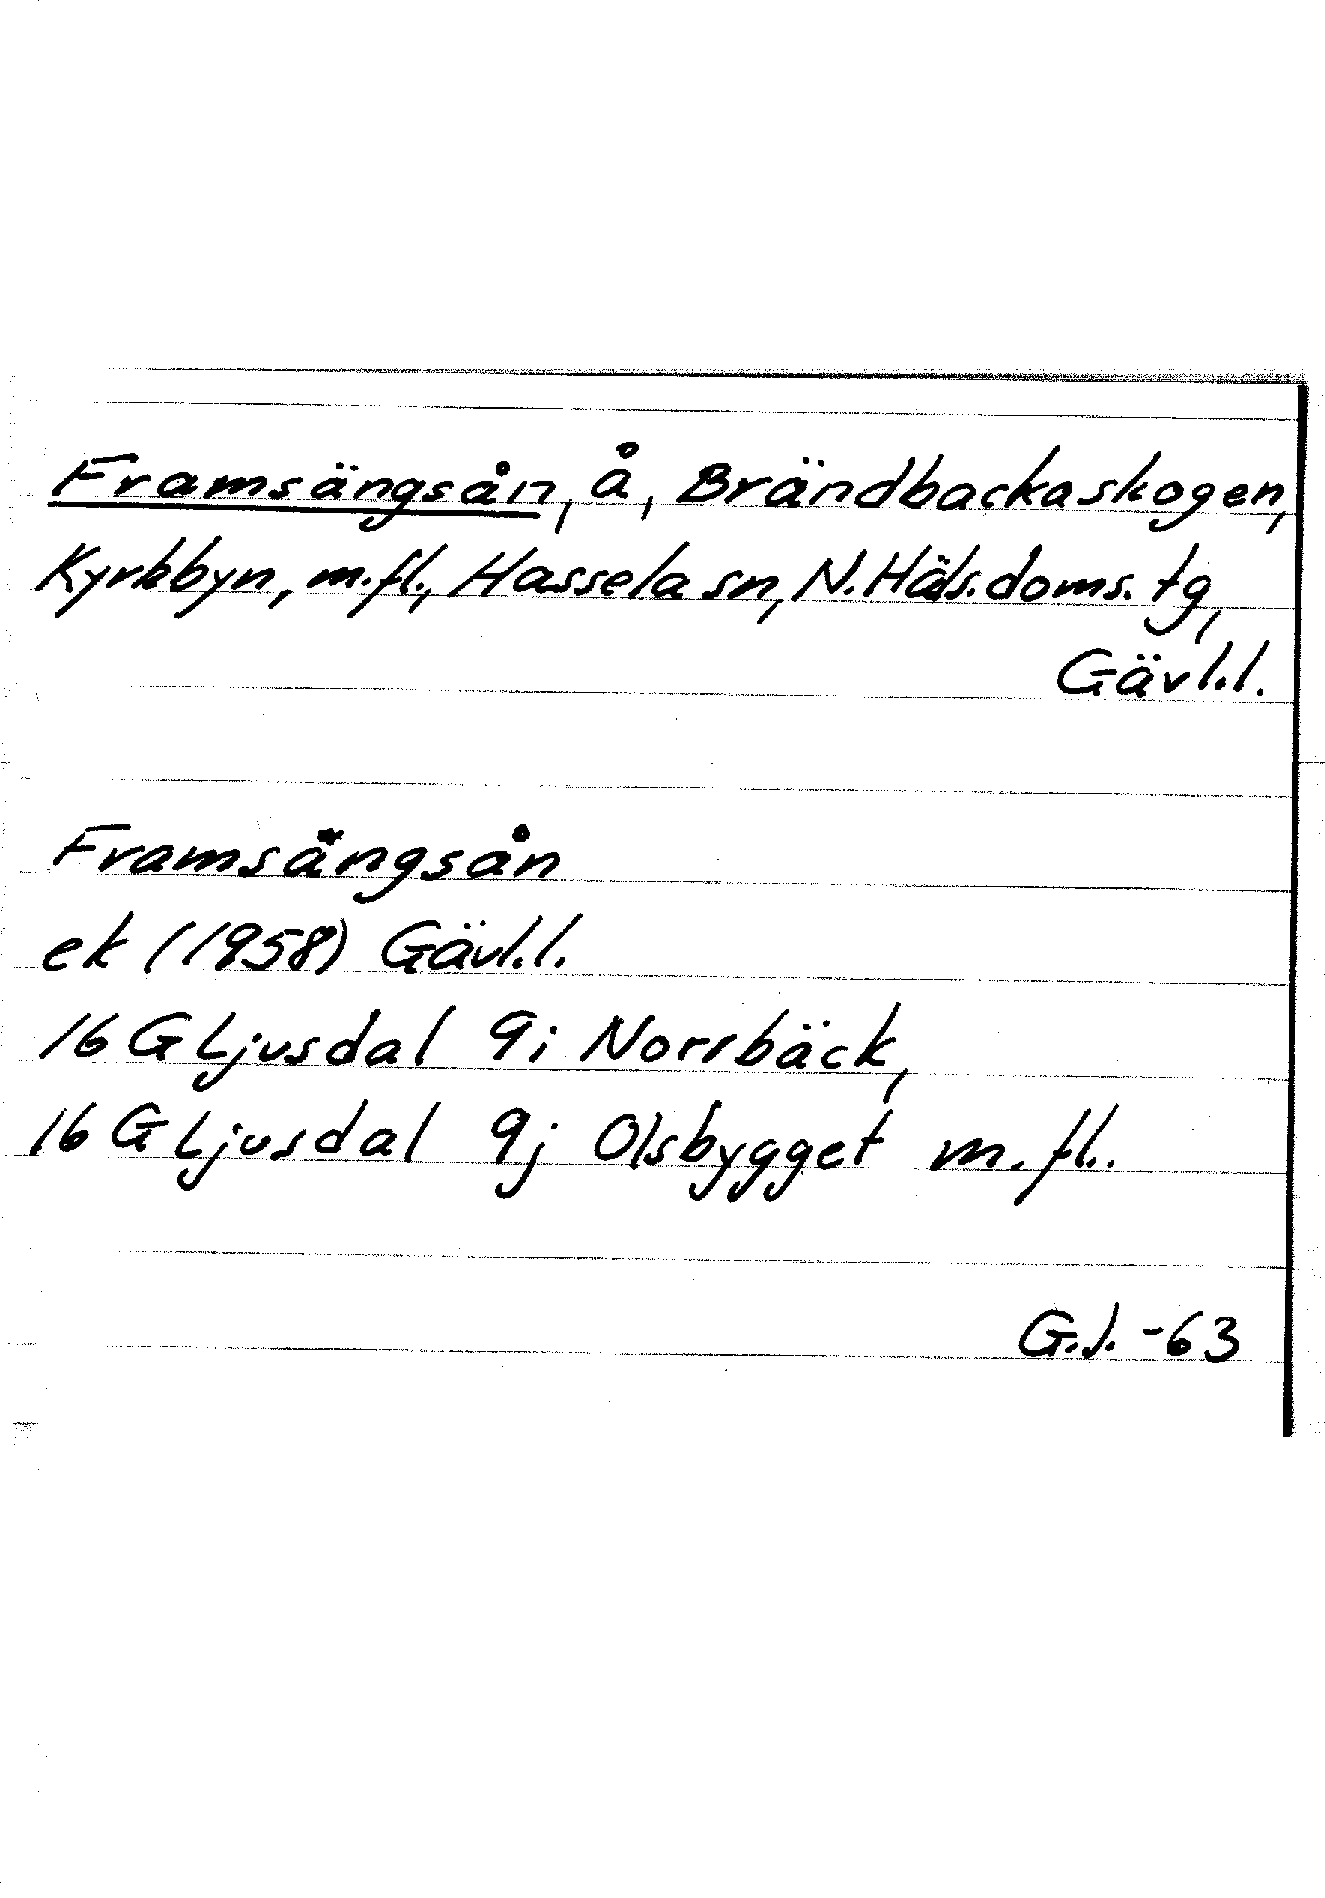 Framsängsån, å, Brändbackaskogen,
Kyrkbyn, m.fl., Hassela sn, N. Häls. doms. tg,
Gävl.l.
Framsängsån
ek (1958) Gävl.l.
16 G Ljusdal 9i Norrbäck,
16 G Ljusdal 9j Olsbygget m.fl.
G.J. -63